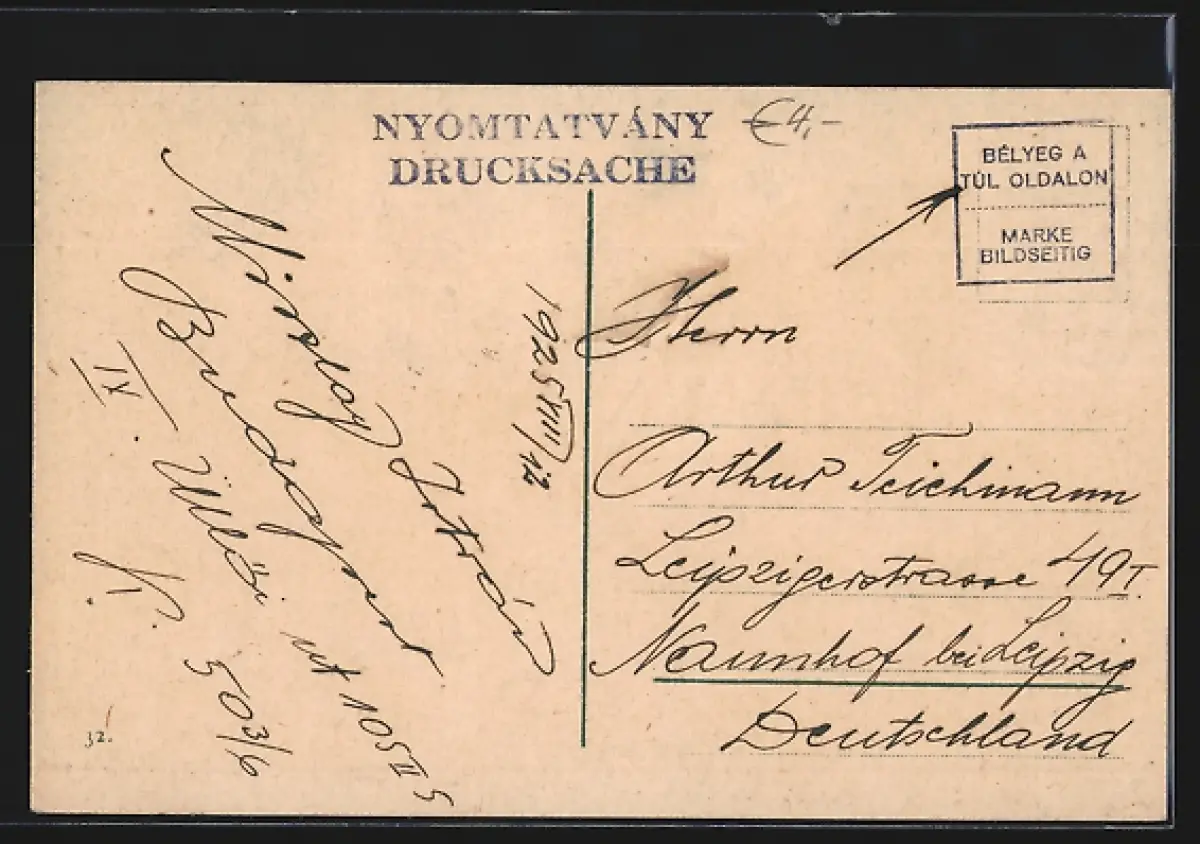 NYOMTATVÁNY
DRUCKSACHE
€4,-
BÉLYEG A
TÚL OLDALON
MARKE
BILDSEITIG
Miszlay István
Budapest
XI. Üllői út
1925 VIII/12
Herrn
Arthur Teichmann
Leipzigerstrasse 49 I.
Naunhof bei Leipzig
Deutschland
32.